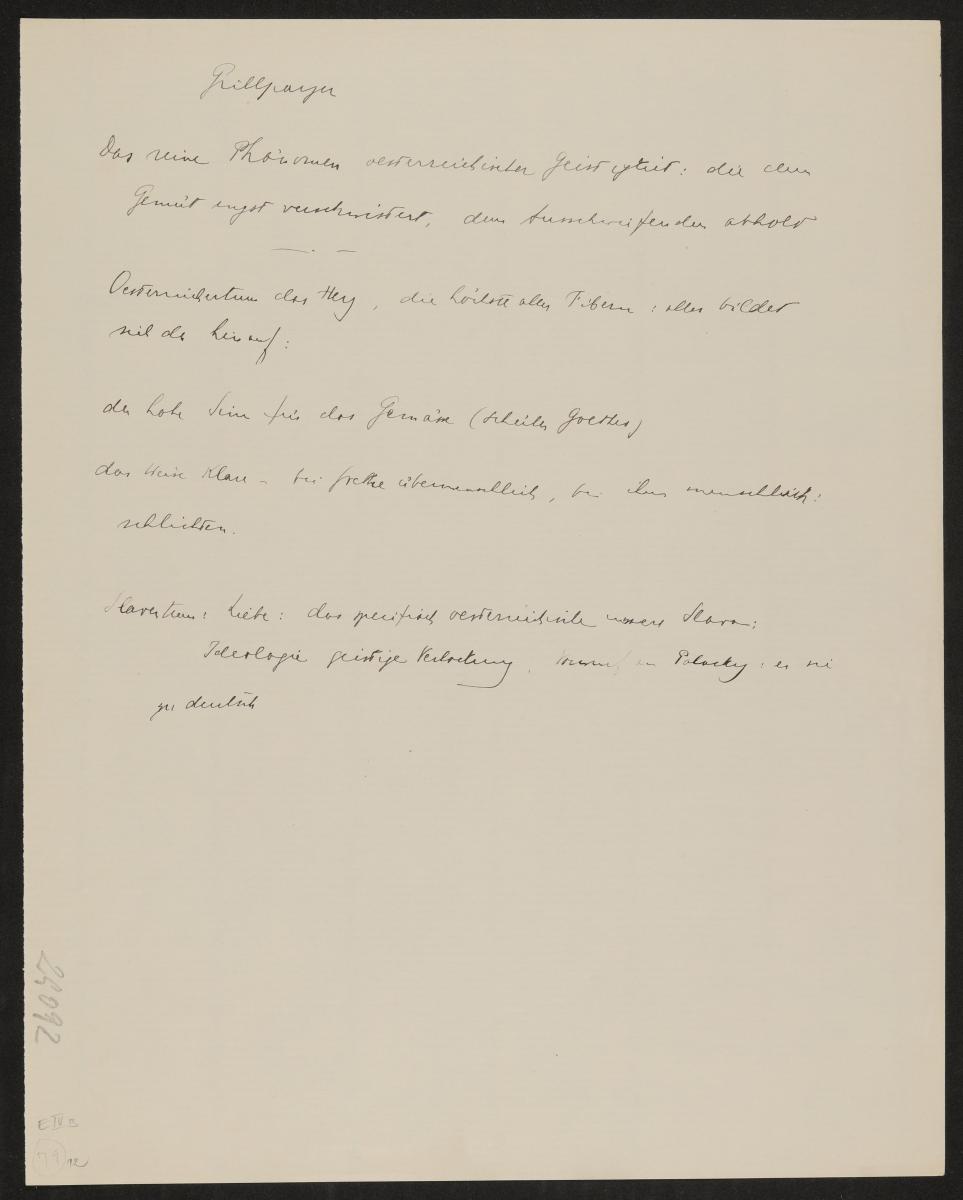 Grillparzer
Das reine Phänomen oesterreichischer Geistigkeit: die dem
Gemüt engst verschwistert, dem Ausschweifenden abhold
— . —
Oesterreichertum das Herz, die höchste aller Fibern: alles bildet
sich da hinauf:
der hohe Sinn für das Gemässe (Schüler Goethes)
das Weise Klare – bei Goethe übermenschlich, bei ihm menschlich:
schlichten.
Slaventum: Liebe: das specifisch oesterreichische unsere Slaven:
Ideologie geistige Verlockung, Palacky: er sei
zu deutsch
29092
E IV B
79 12